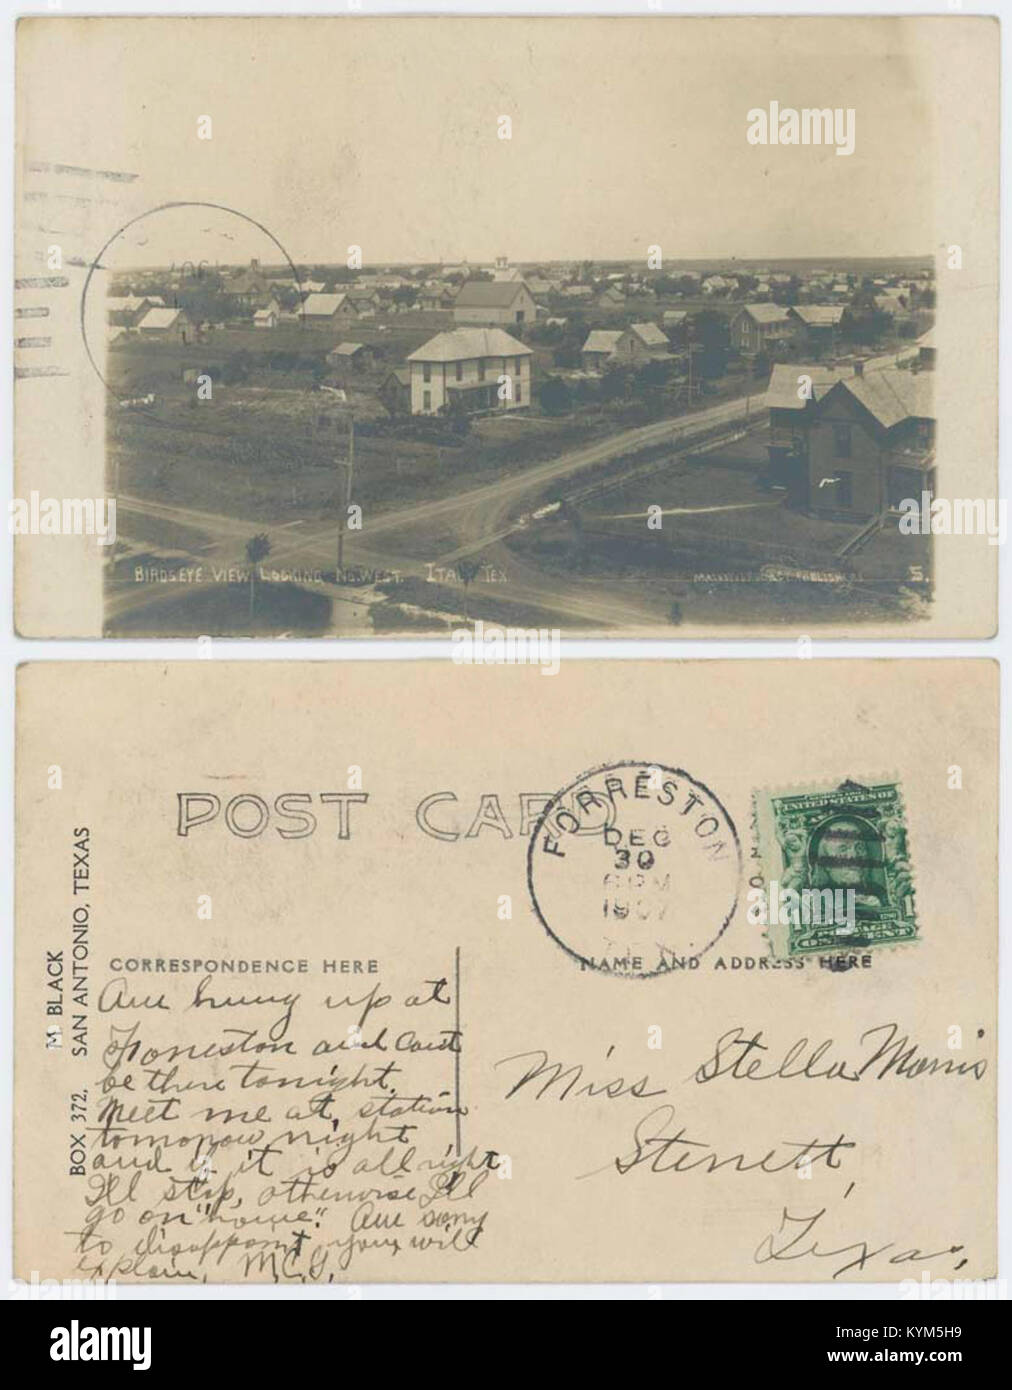 alamy
BIRDSEYE VIEW LOOKING NO. WEST. ITALY TEX
PUBLISHERS
5.
POST CARD
FORRESTON
DEC
30
6 PM
1907
TEX.
UNITED STATES OF
POSTAGE
ONE CENT
M. BLACK
BOX 372, SAN ANTONIO, TEXAS
CORRESPONDENCE HERE
NAME AND ADDRESS HERE
Am hung up at
Forreston and can't
be there tonight.
Meet me at station
tomorrow night
and if it is all right
I'll stop, otherwise I'll
go on "home". Am sorry
to disappoint you, will
explain. M.C.G.
Miss Stella Morris
Sterrett,
Texas,
alamy
Image ID: KYM5H9
www.alamy.com